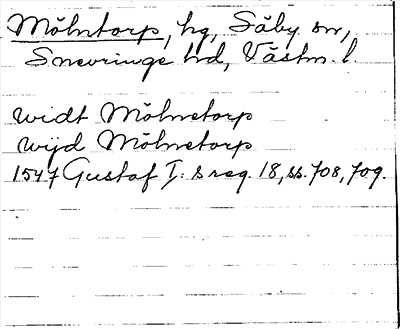 Mölntorp, hg, Säby sn,
Snevringe hd, Västm. l.
widt Mölnetorp
wijd Mölnetorp
1547 Gustaf I:s reg. 18, ss. 708, 709.